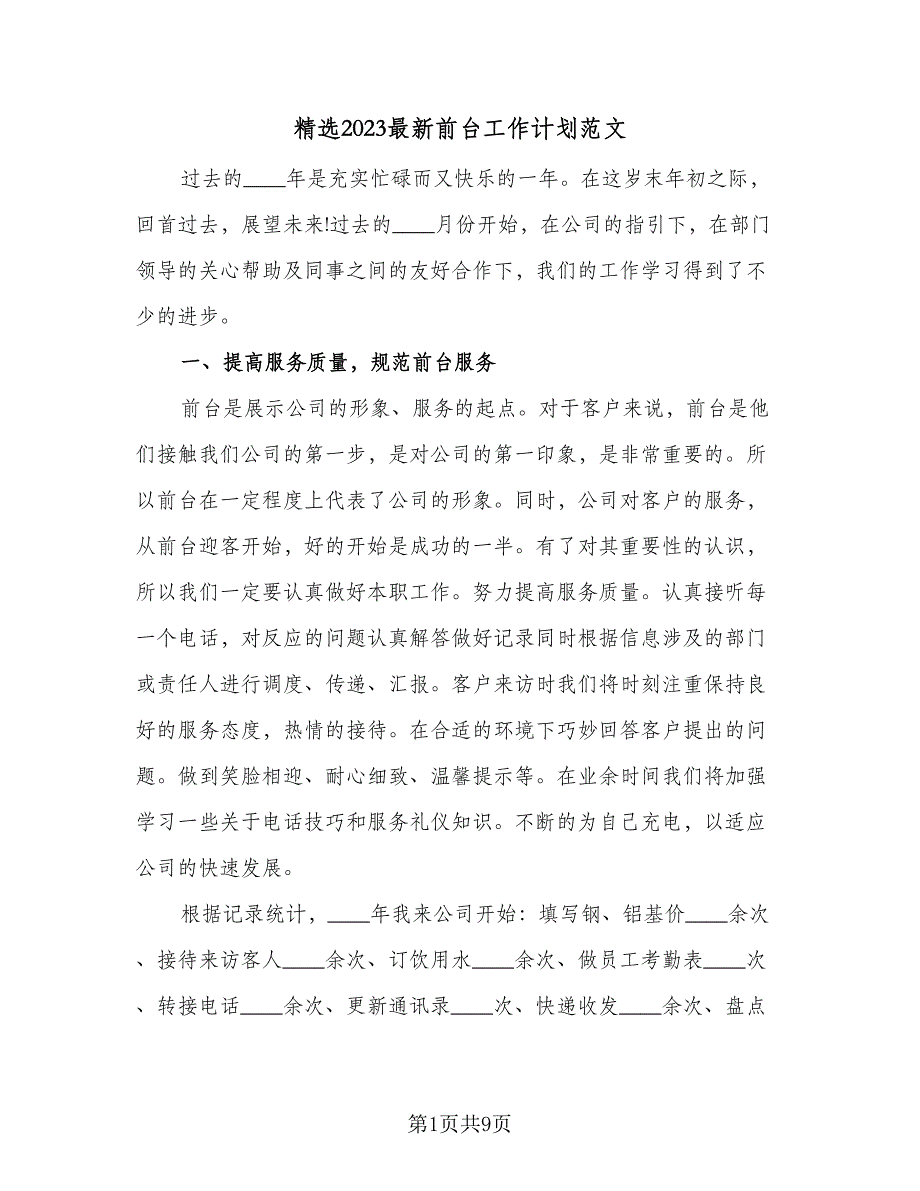 精选2023最新前台工作计划范文
过去的____年是充实忙碌而又快乐的一年。在这岁末年初之际，
回首过去，展望未来!过去的____月份开始，在公司的指引下，在部门
领导的关心帮助及同事之间的友好合作下，我们的工作学习得到了不
少的进步。
一、提高服务质量，规范前台服务
前台是展示公司的形象、服务的起点。对于客户来说，前台是他
们接触我们公司的第一步，是对公司的第一印象，是非常重要的。所
以前台在一定程度上代表了公司的形象。同时，公司对客户的服务，
从前台迎客开始，好的开始是成功的一半。有了对其重要性的认识，
所以我们一定要认真做好本职工作。努力提高服务质量。认真接听每
一个电话，对反应的问题认真解答做好记录同时根据信息涉及的部门
或责任人进行调度、传递、汇报。客户来访时我们将时刻注重保持良
好的服务态度，热情的接待。在合适的环境下巧妙回答客户提出的问
题。做到笑脸相迎、耐心细致、温馨提示等。在业余时间我们将加强
学习一些关于电话技巧和服务礼仪知识。不断的为自己充电，以适应
公司的快速发展。
根据记录统计，____年我来公司开始：填写钢、铝基价____余次
、接待来访客人____余次、订饮用水____余次、做员工考勤表____次
、转接电话____余次、更新通讯录____次、快递收发____余次、盘点
第1页共9页